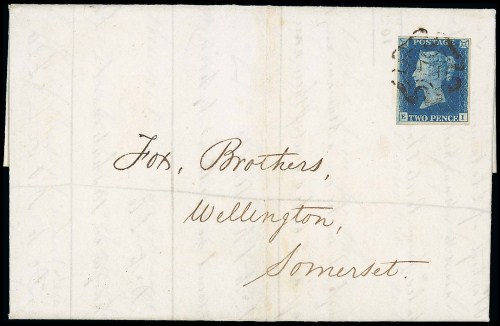 POSTAGE
E I
TWO PENCE
Fox, Brothers,
Wellington,
Somerset.